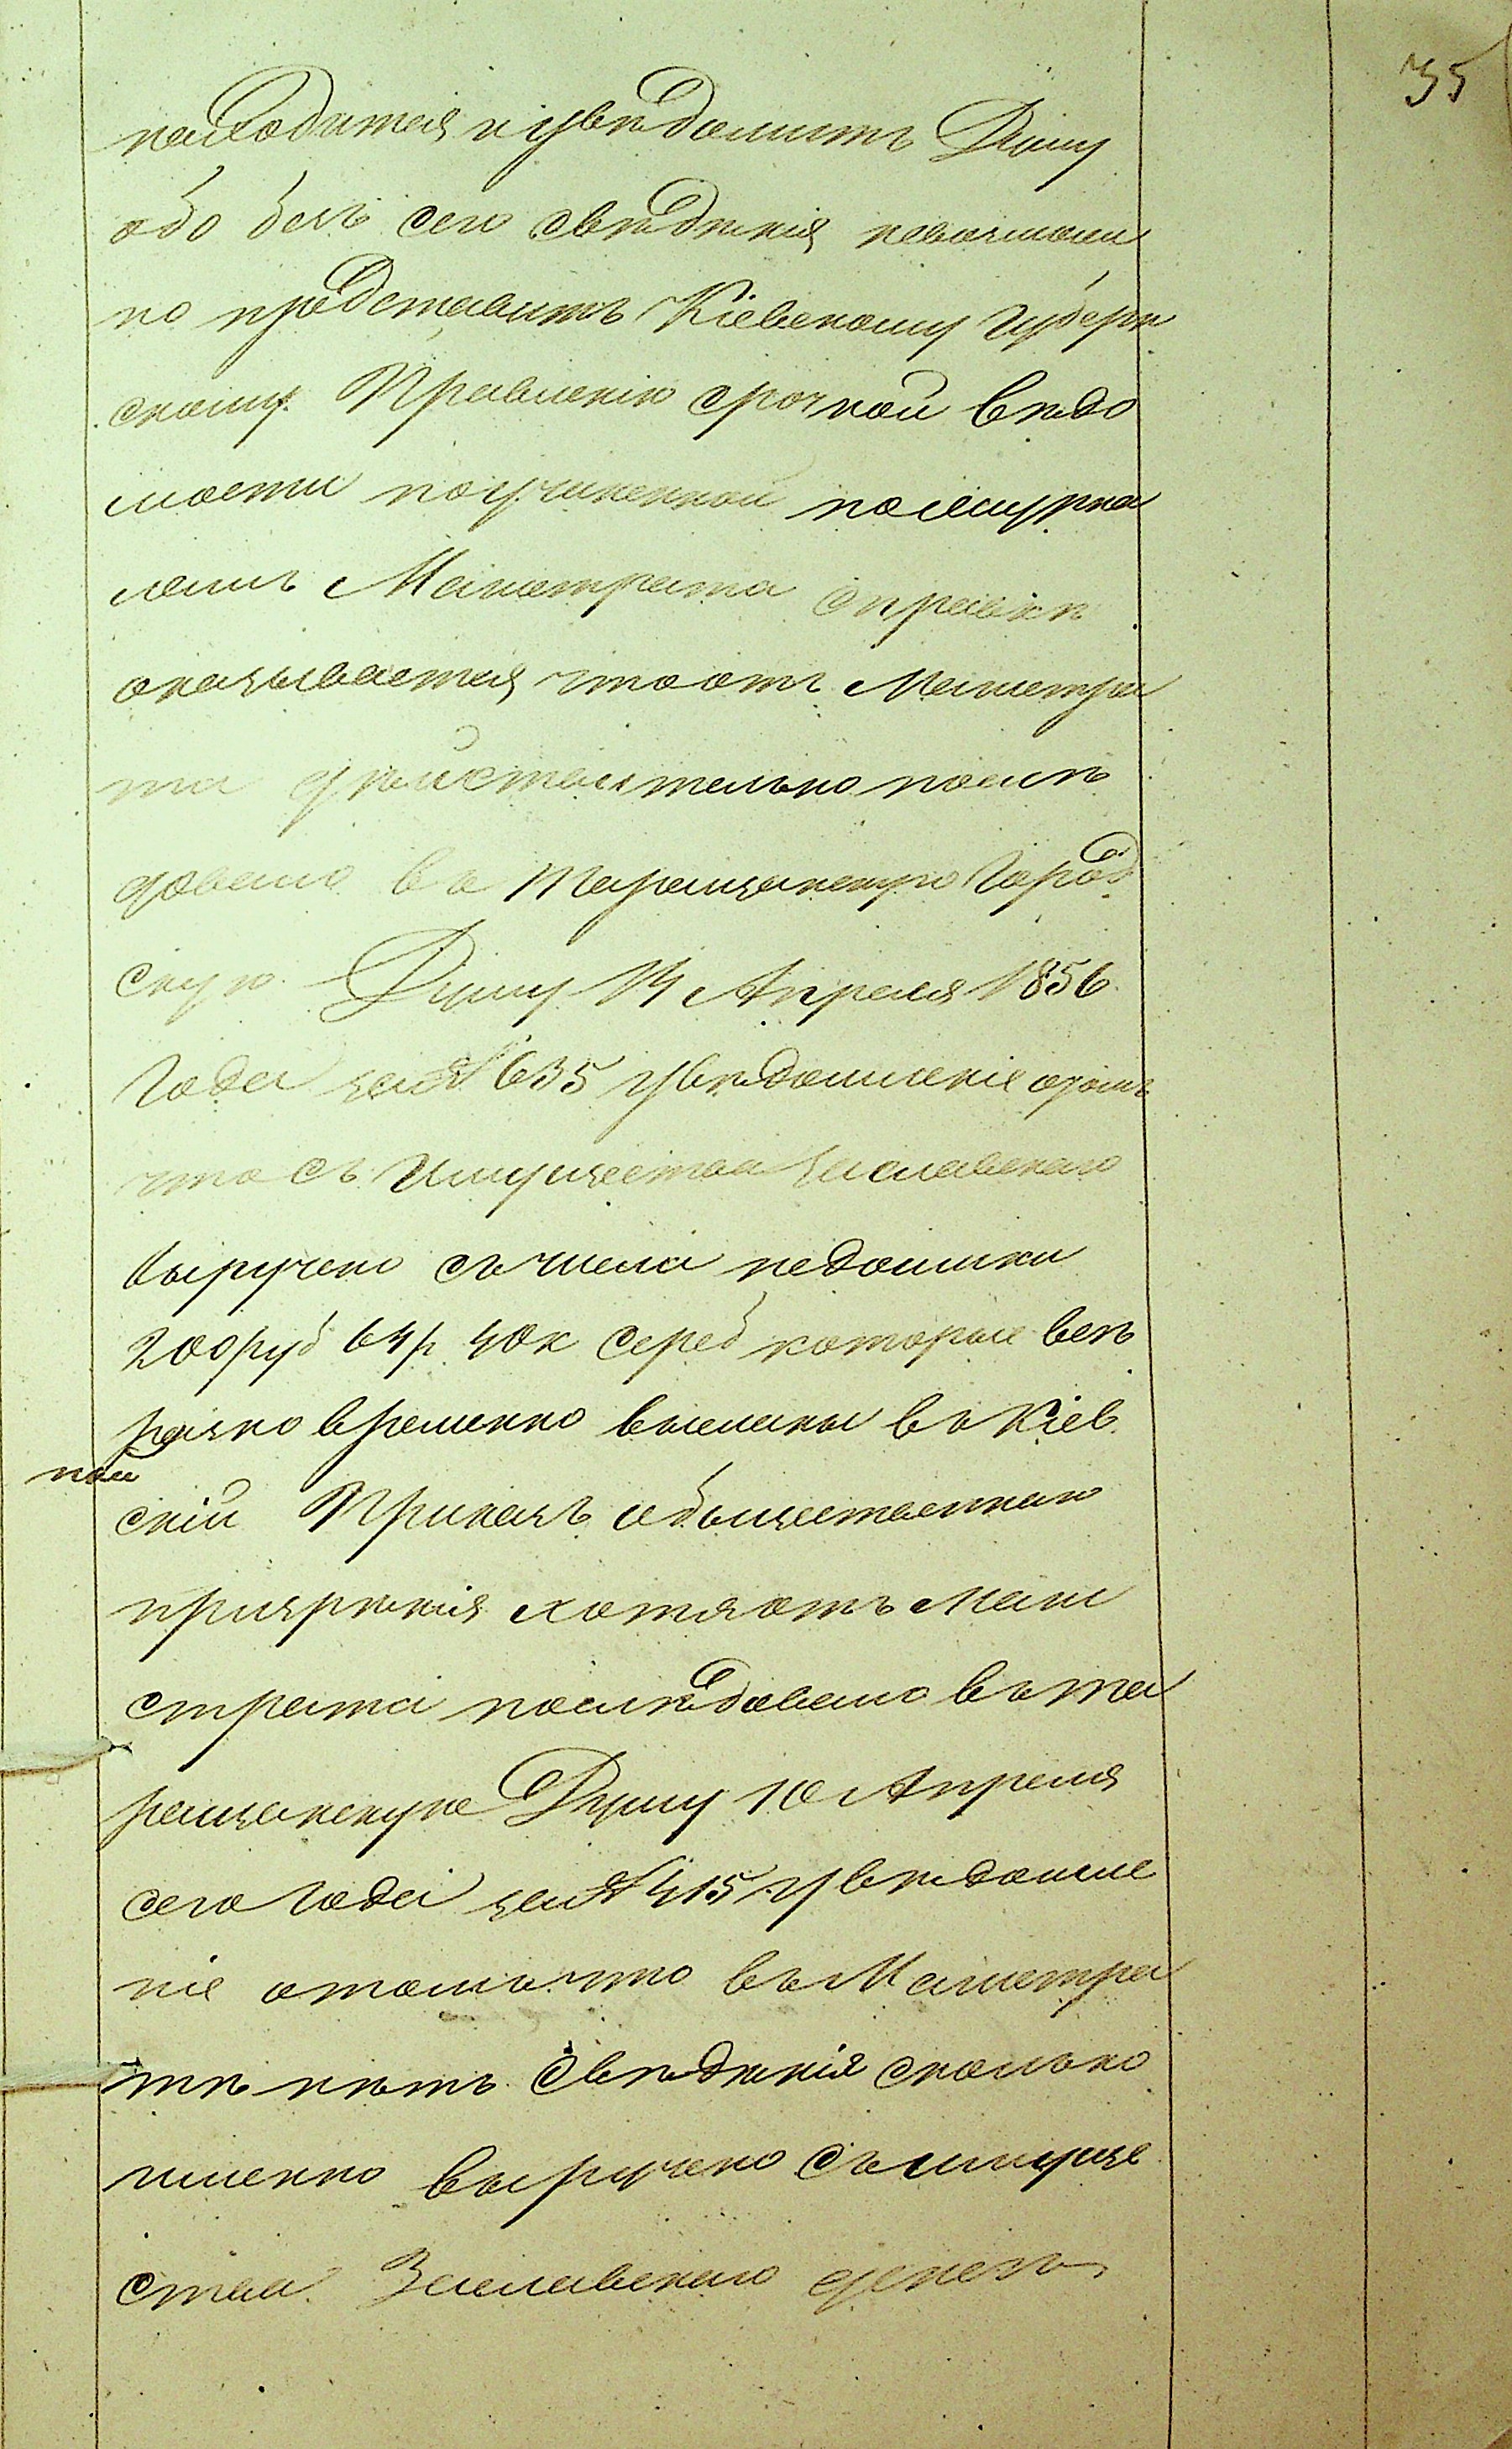 35
находится и увѣдомить Думу
обо безъ сего свѣдѣнія невозможн
но представить Кіевскому Губерн
скому Правленію срочной вѣдо
мости поучиненной
Магистрата справки
оказывается что отъ Магистра
та дѣйствительно послѣ
довало въ Таращанскую Город
скую Думу 14 Апреля 1856
года за № 635 увѣдомленіе отомъ
что съ имущества Заславскаго
выручено съ числа недоимки
200 руб 64 р 40 к сереб которые
временно высланы въ Кіев
ской
скій Приказъ общественнаго
призрѣнія хотя отъ Маги
страта послѣдовало въ Та
ращанскую Думу 10 Апреля
сего года за № 415 увѣдомле
ніе отомъ что въ Магистра
тѣ нѣтъ свѣдѣнія сколько
именно выручено съ имуще
ства Заславскаго денегъ